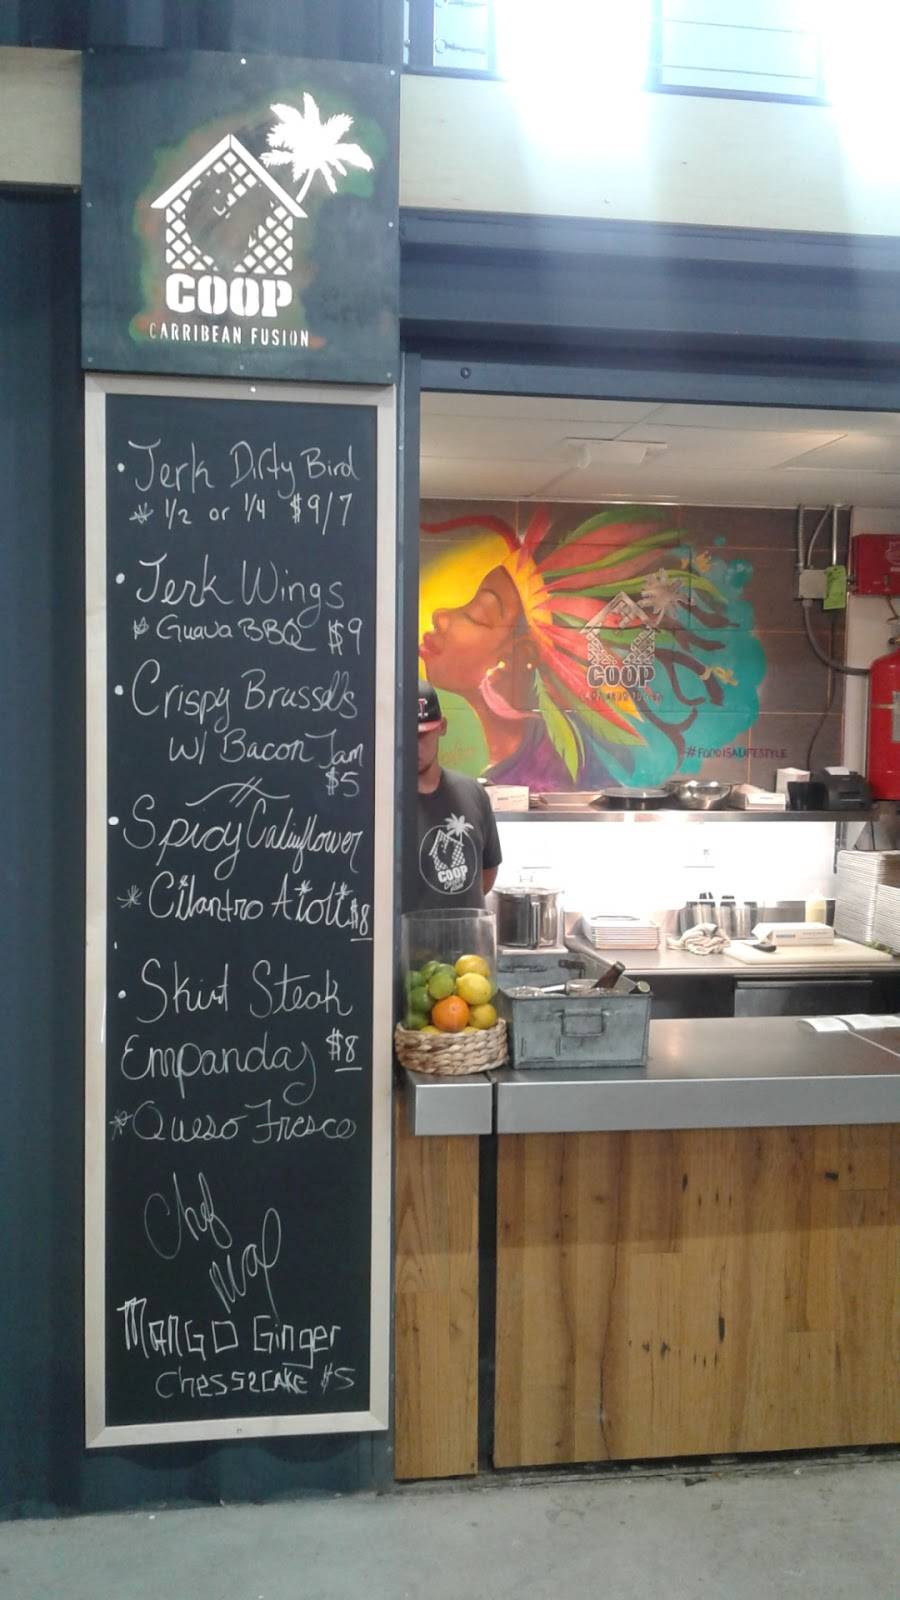 COOP
CARRIBEAN FUSION
• Jerk Dirty Bird
1/2 or 1/4 $9/7
• Jerk Wings
Guava BBQ $9
• Crispy Brussells
W/ Bacon Jam
$5
• Spicy Caliuflower
* Cilantro Aioli $8
• Skirt Steak
Empandas $8
* Queso Fresco
Chef
Mango Ginger
Chessecake $5
COOP
#FOODISALIFESTYLE
COOP